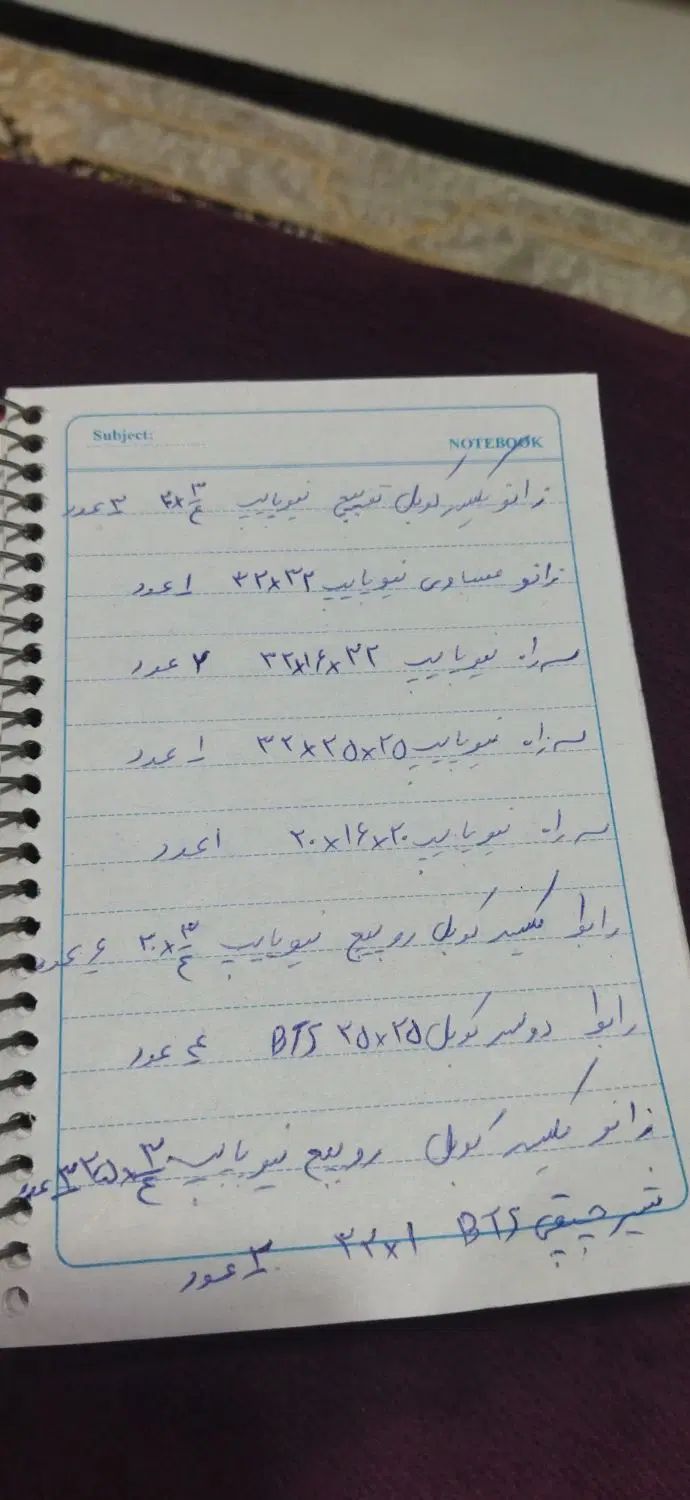 Subject:
NOTEBOOK
زانو یکسر کوپل توپیچ نیوپایپ ۲۰×۳/۴ ۳ عدد
زانو مساوی نیوپایپ ۳۲×۳۲ ۱ عدد
سه راه نیوپایپ ۳۲×۱۶×۳۲ ۲ عدد
سه راه نیوپایپ ۳۲×۲۵×۲۵ ۱ عدد
سه راه نیوپایپ ۲۰×۱۶×۲۰ ۱ عدد
رابط یکسر کوپل روپیچ نیوپایپ ۲۰×۳/۴ ۶ عدد
رابط دوسر کوپل ۲۵×۲۵ BTS عدد
زانو یکسر کوپل روپیچ نیوپایپ ۲۵×۳/۴ ۳ عدد
شیر حقیقی BTS ۳۲×۱ عدد